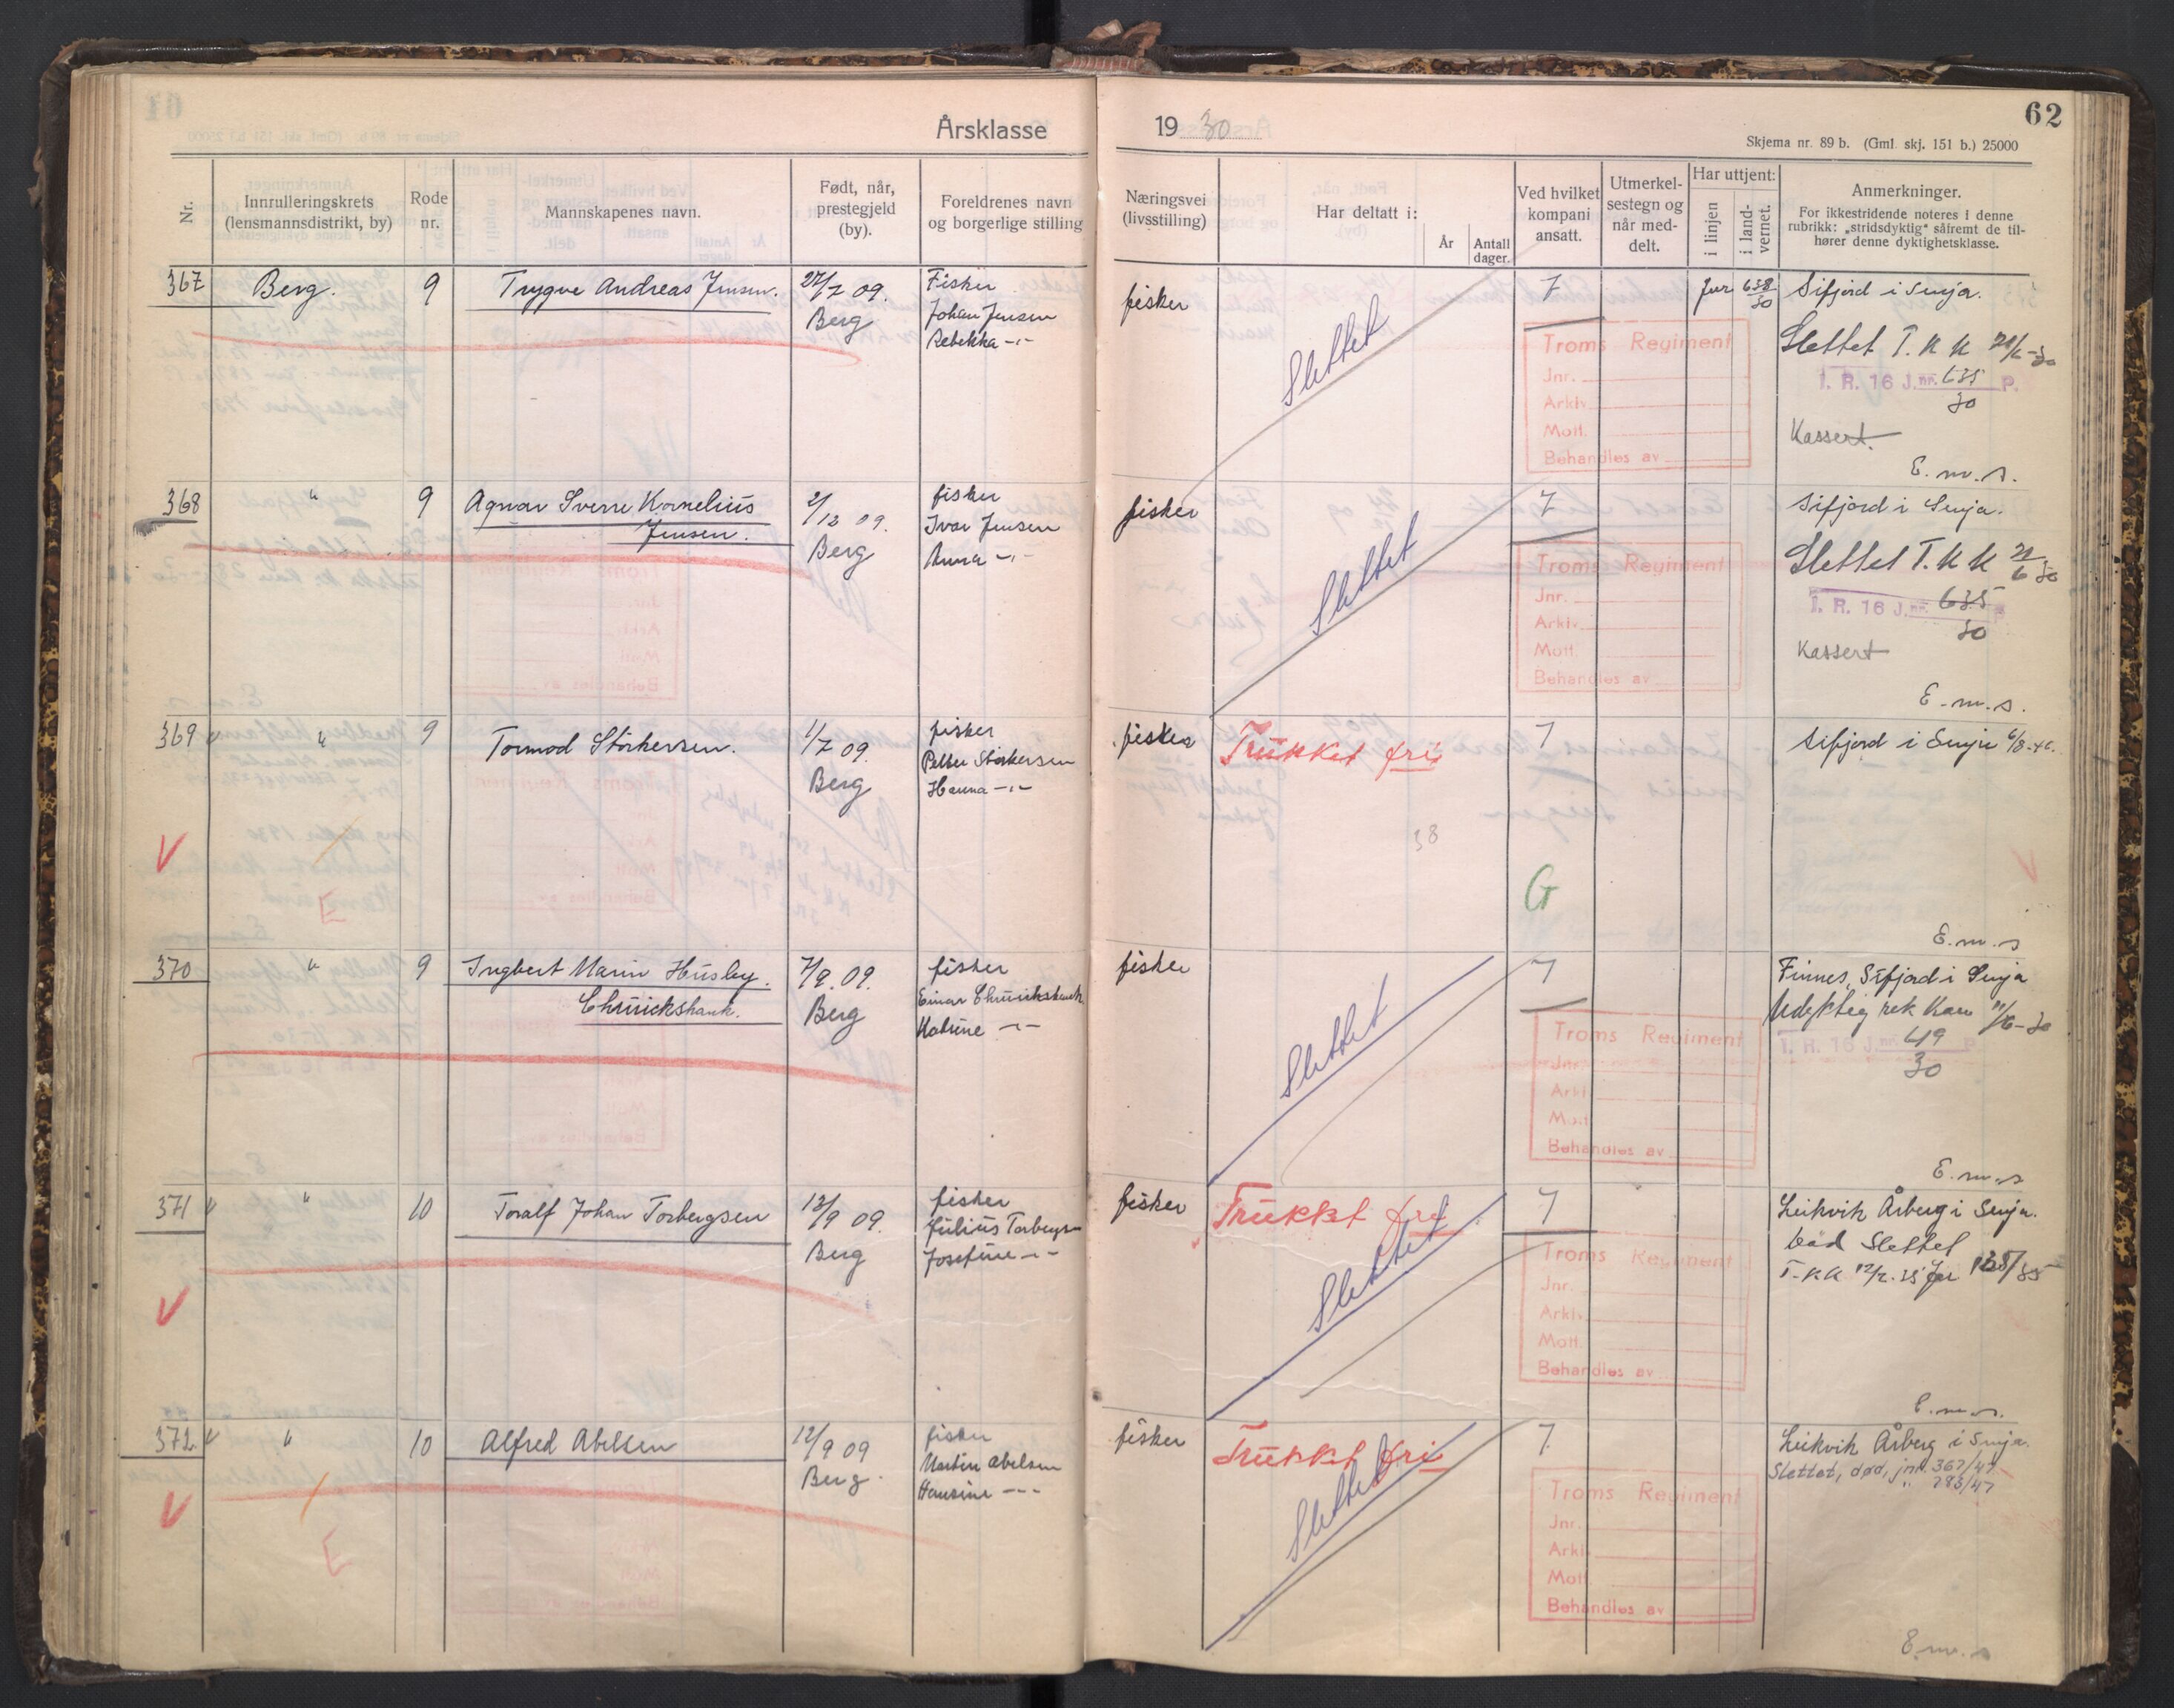 Årsklasse
19 30
62
Skjema nr. 89 b. (Gml. skj. 151 b.) 25000
Nr.
Innrulleringskrets (lensmannsdistrikt, by)
Rode nr.
Mannskapenes navn.
Født, når, prestegjeld (by).
Foreldrenes navn og borgerlige stilling
Næringsvei (livsstilling)
Har deltatt i:
År
Antall dager.
Ved hvilket kompani ansatt.
Utmerkelsestegn og når meddelt.
Har uttjent:
i linjen
i landvernet.
Anmerkninger.
For ikkestridende noteres i denne rubrikk: „stridsdyktig“ såfremt de tilhører denne dyktighetsklasse.
367 Berg. 9 Trygve Andreas Jensen. 27/7 09. Fisker fisker 7 Jnr 638/30 Sifjord i Senja.
Berg Johan Jensen
Rebekka -"-
Slettet
Slettet T.K.K 21/6-30
I. R. 16 J.nr. 635 P.
30
Kassert
E.m.s.
Troms Regiment
Jnr.
Arkiv
Mott.
Behandles av
368 " 9 Agnar Sverre Kornelius 2/12 09. fisker fisker 7 Sifjord i Senja.
Jensen. Berg Ivar Jensen
Anna -"-
Slettet
Slettet T.K.K 21/6 30
I. R. 16 J.nr. 635 P
30
Kassert
E.m.s.
Troms Regiment
Jnr.
Arkiv.
Mott.
Behandles av
369 " 9 Tormod Størkersen. 1/7 09. fisker fisker Trukket fri 7 Sifjord i Senja 6/8-46.
Berg Petter Størkersen
Hanna -"-
38
V
E
G
E.m.s
370 " 9 Ingbert Marin Husby. 7/9. 09. fisker fisker 7 Finnes, Sifjord i Senja
Chruickshank. Berg Einar Chruickshank
Katrine -"-
Slettet
Udyktig rek kan 11/6-30
I. R. 16 J.nr. 619 P
30
E.m.s
Troms Regiment
Jnr.
Arki
Mott.
Behandles av
371 " 10 Toralf Johan Torbergsen 13/9 09. fisker fisker Trukket fri 7 Leikvik Årberg i Senja.
Berg Julius Torbergsen
Josefine -"-
Slettet
Slettet
T.K.K 12/2.35 Jnr 128/35
V
E.m.s.
Troms Regiment
Jnr.
Arkiv.
Mott.
Behandles av
372 " 10 Alfred Abelsen 12/9 09 fisker fisker Trukket fri 7. Leikvik Årberg i Senja.
Berg. Martin Abelsen
Hansine -"-
Slettet
Slettet, død, jnr. 367/47
" 783/47
V
E
E.m.s
Troms Regiment
Jnr.
Arki
Mott
Behandles av